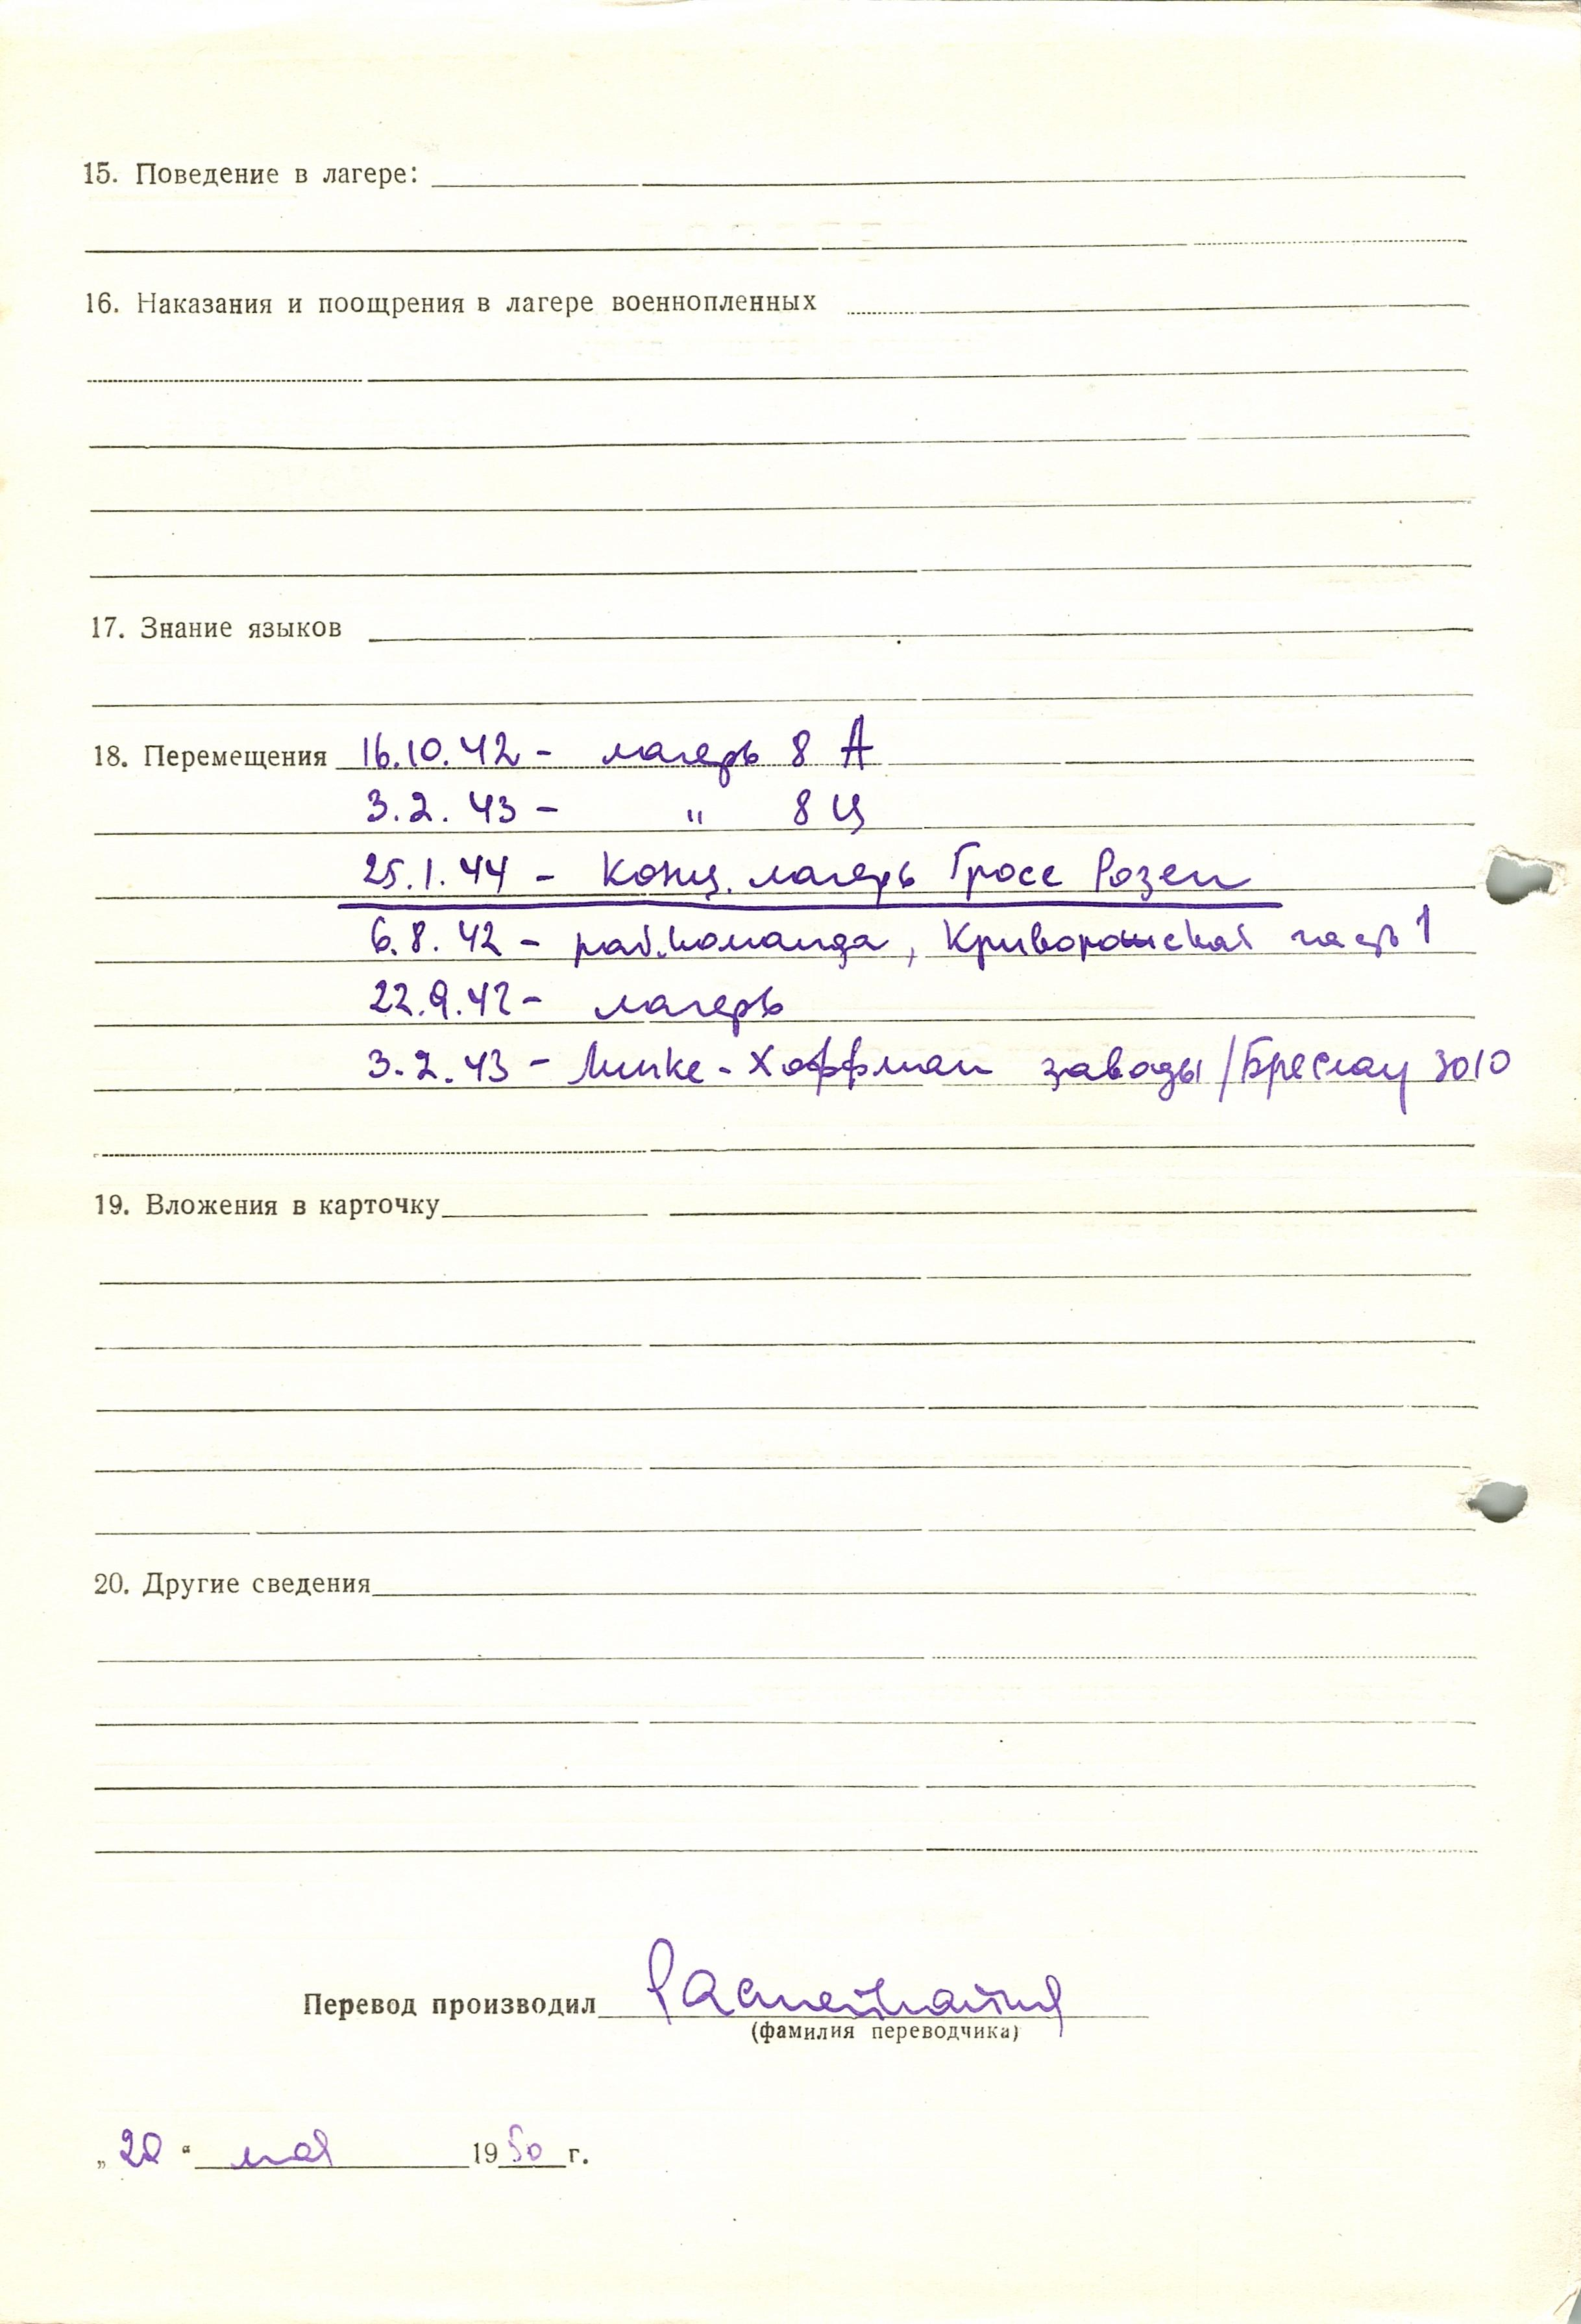 15. Поведение в лагере:
16. Наказания и поощрения в лагере военнопленных
17. Знание языков
18. Перемещения 16.10.42 - лагерь 8 А
3.2.43 - " 8 Ц
25.1.44 - Конц. лагерь Гросс Розен
6.8.42 - раб.команда, часть 1
22.9.42 - лагерь
3.2.43 - Линке-Хоффман заводы /Бреслау 3010
19. Вложения в карточку
20. Другие сведения
Перевод производил
(фамилия переводчика)
„20“ мая 1950 г.